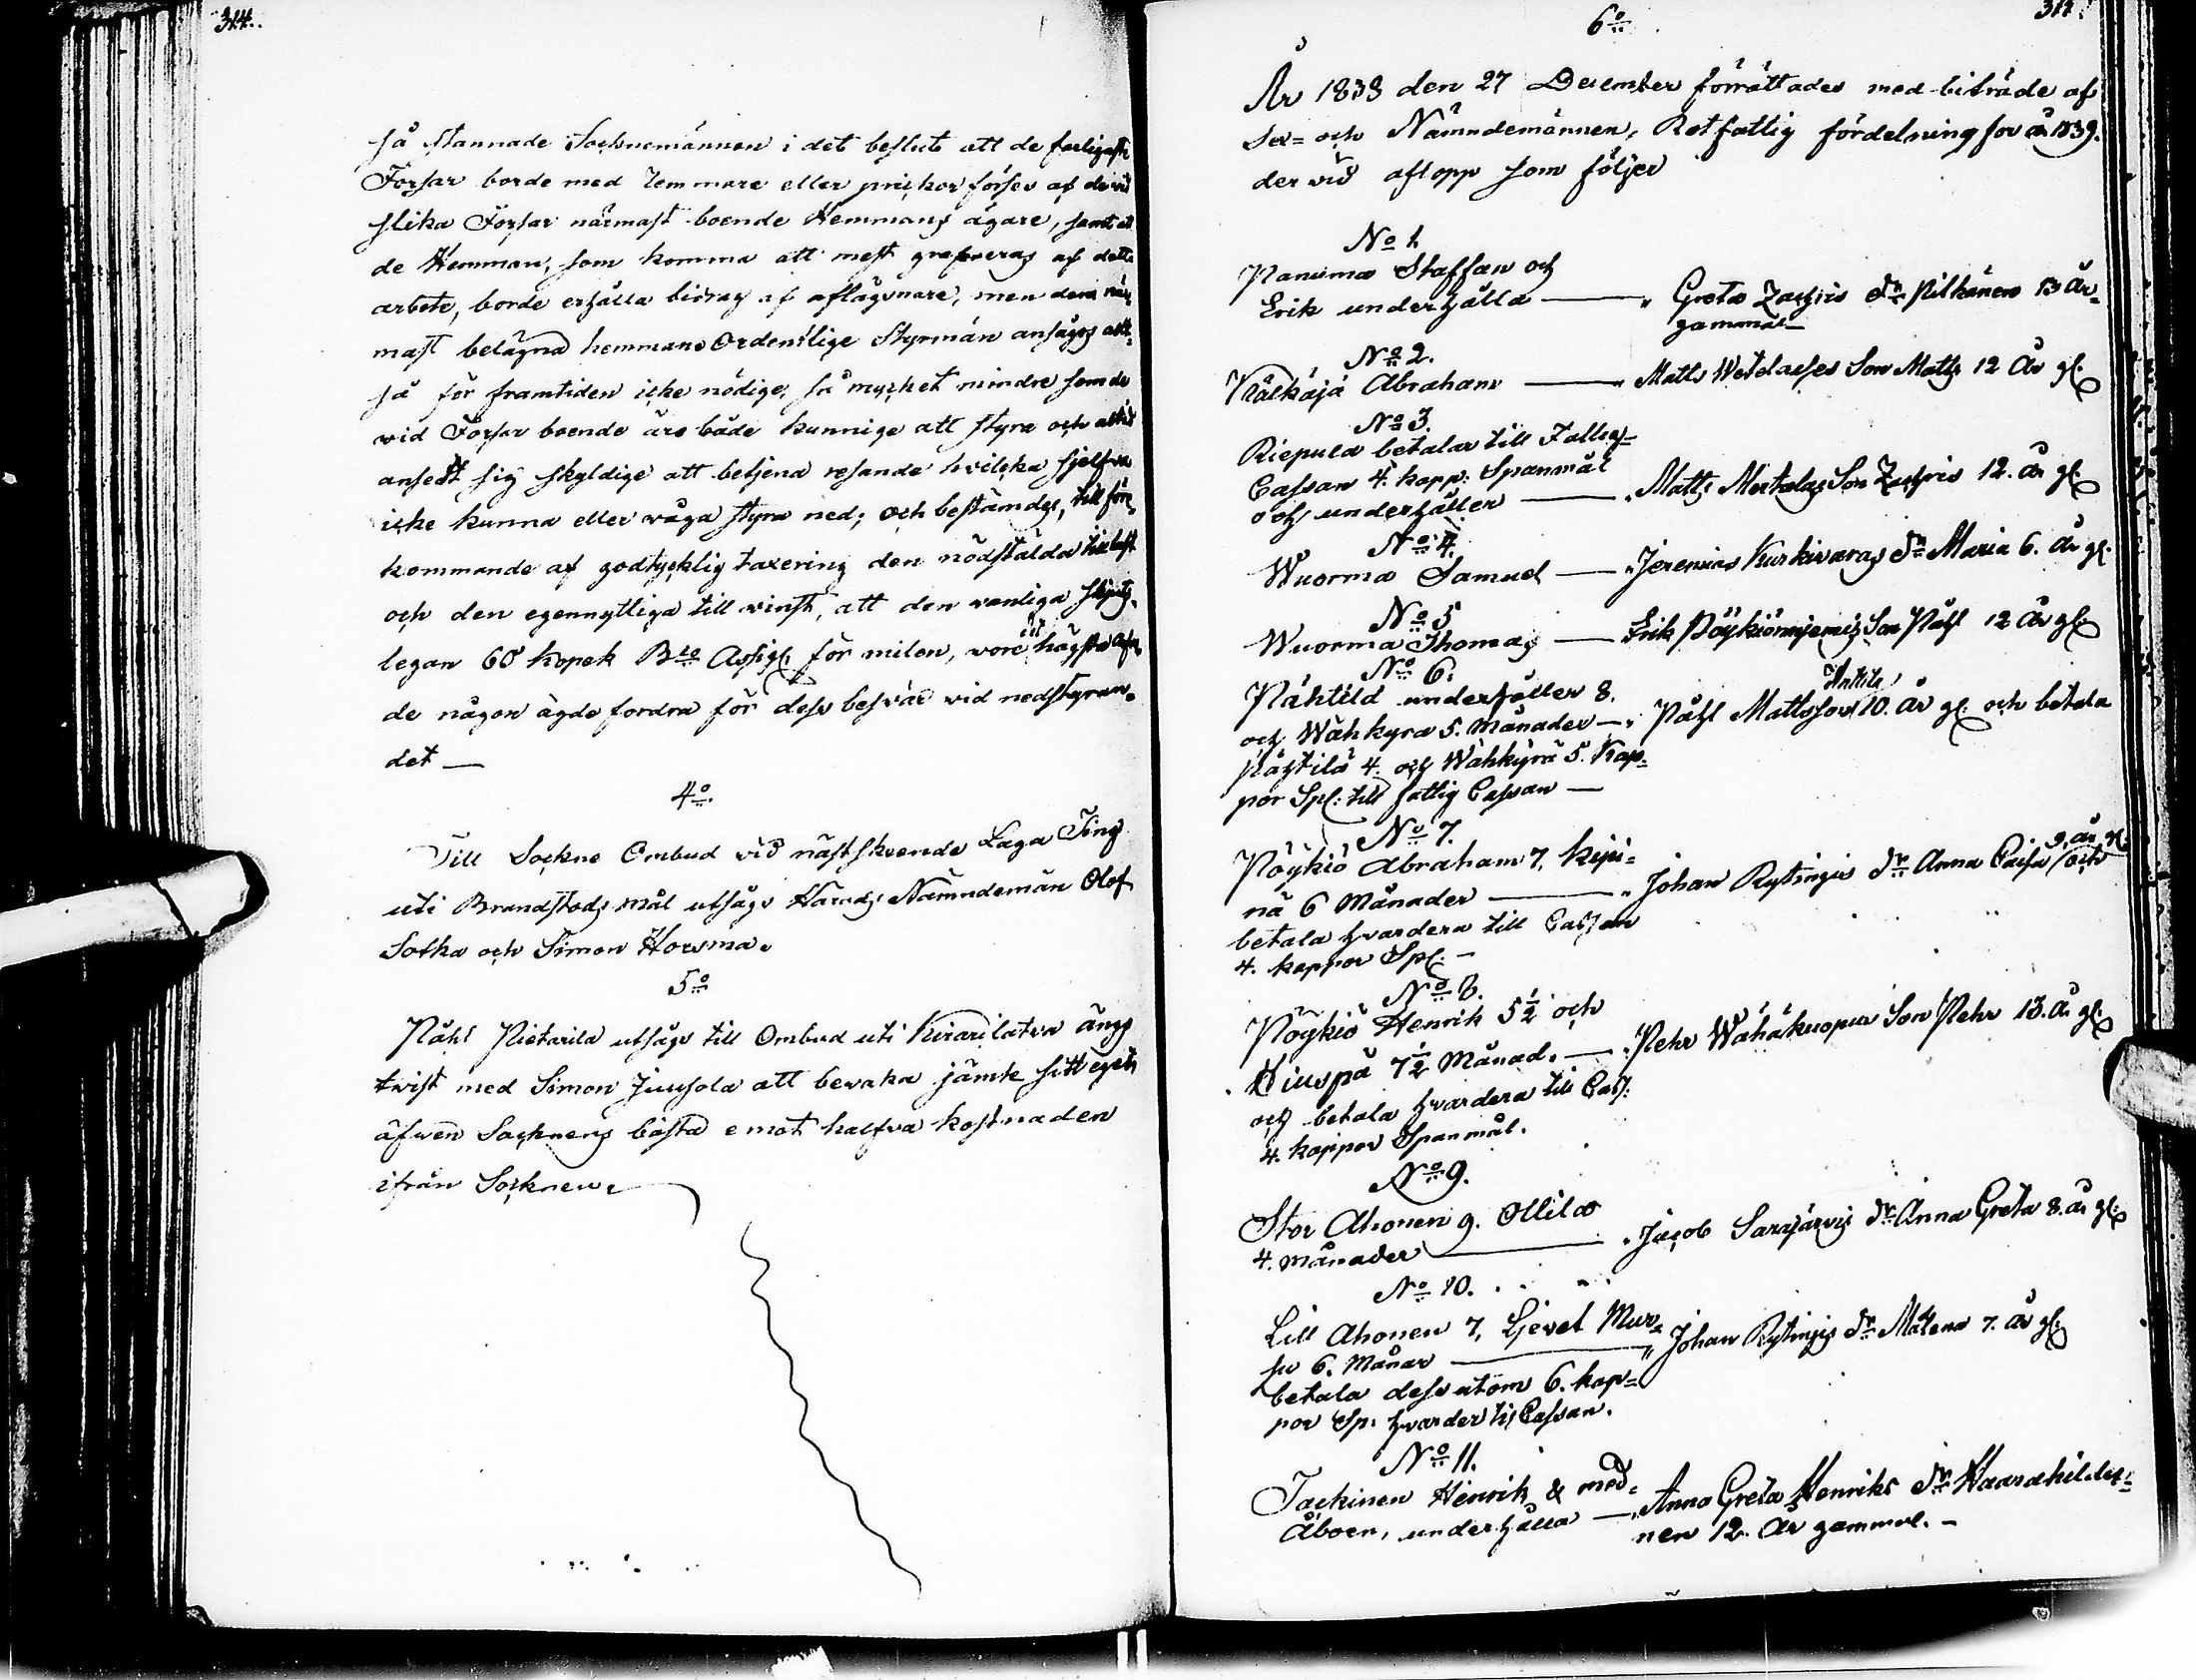 314.
så stannade Socknemännen i det beslut att de farligaste
Forsar borde med remmare eller prickor förses af de vid
slika Forsar närmast boende Hemmans ägare, samt att
de Hemman, som komma att mest graveras af detta
arbete, borde erhålla bidrag af aflägsnare, men dem när=
mast belägna hemman Ordentlige Styrmän ansågs allt=
så för framtiden icke nödige, så mycket mindre som de
vid Forsar boende äro både kunnige att styra och alltid
ansedt sig skyldige att betjena resande hvilka sjelfva
icke kunna eller våga styra ned; och bestämdes, till före=
kommande af godtycklig taxering den nödstälda till last
och den egennyttiga till vinst, att den vanliga skjuts=
legan 60 kopek Bco Assign: för milen, vore det högsta
de någon ägde fordra för dess besvär vid nedstyran=
det —
4o.
Till Sockne Ombud vid nästskeende Laga Ting
uti Brandstods mål utsågs Härads Nämndemän Olof
Sotka och Simon Horsma.
5o
Påhl Pietarila utsågs till Ombud uti Kivarilatva ängs
tvist med Simon Juusola att bevaka jämte sitt eget,
äfwen Socknens bästa emot halfva kostnaden
ifrån Socknen.
6o
År 1838 den 27 December förrättades med biträde af
Sex= och Nämndemännen, Rotfattig fördelning för år 1839.
der vid aflopp som följer
No 1.
Panuma Staffan och
Erik underhålla — " Greta Zachris dr Pilkänen 13 År
gammal
No 2.
Kälkäjä Abraham — " Matts Wetelaises Son Matts 12 År gl:
No 3.
Riepula betalar till Fattig=
Cassan 4. kapp: Spanmål
och underhåller — " Matts Mertalas Son Zachris 12. År gl:
No 4.
Wuorma Samuel — " Jeremias Kurkivaras dr Maria 6. År gl:
No 5
Wuorma Thomas — Erik Pöykiönniemis Son Påhl 12 År gl:
No 6.
Pähtilä underhåller 8.
och Wähkyrä 5. Månader — " Påhl Mattsson Anttila 10. År gl: och betala
Pähtilä 4. och Wähkyrä 5. Kap=
por Spl: till fattig Cassan —
No 7.
Pöykiö Abraham 7, Kipi=
nä 6 Månader — " Johan Rytingis dr Anna Caisa 9. år gl: och
betala hvardera till Cassan
4. kappor Spl: —
No 8.
Pöykiö Henrik 5½ och
7½ Månad. — " Pehr Wähäkuopus Son Pehr 13. År gl:
och betala hvardera till Cass:
4. kappor Spanmål.
No 9.
Stor Ahonen 9. Ollila
4. Månader — " Jacob Sarajärvis dr Anna Greta 8. år gl:
No 10.
Lill Ahonen 7, Mur=
su 6. Månar — " Johan Rytingis dr Malena 7. År gl:
betala dessutom 6. kap=
por Sp: hvarder til Cassan.
No 11.
Tackinen Henrik & med=
Åboen, underhålla — " Anna Greta Henriks dr Haarahilder=
nen 12. År gammal. —